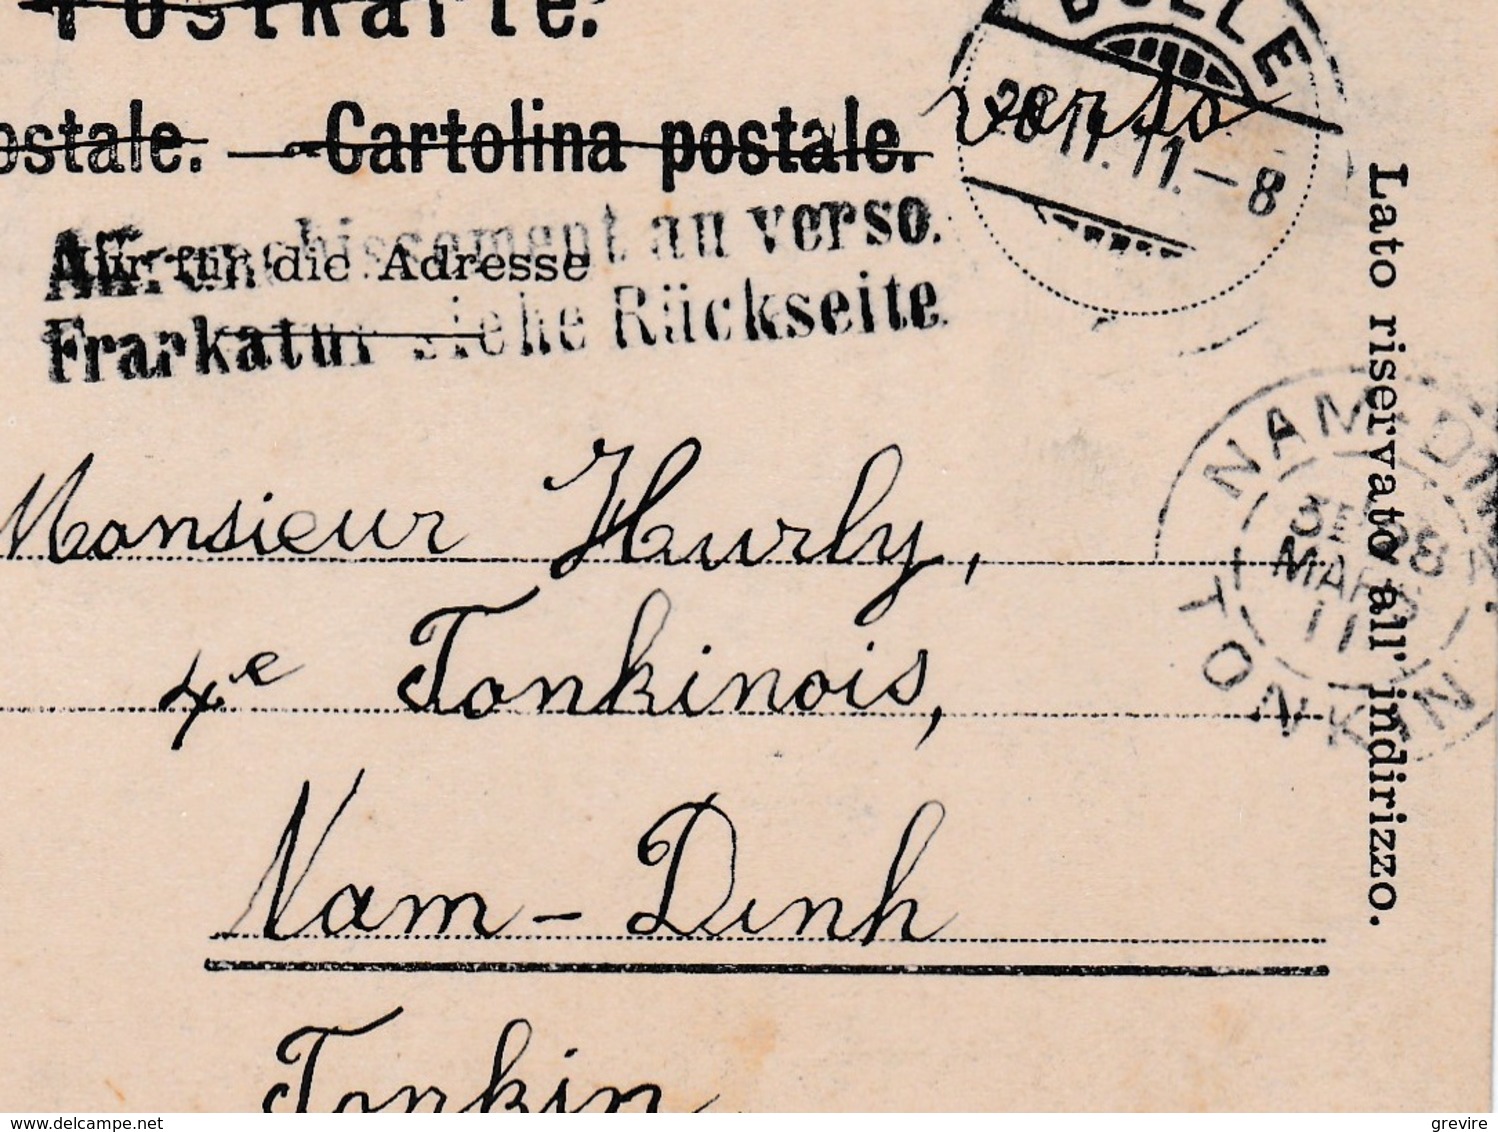 Postkarte.
ostale. — Cartolina postale.
BULLE
verso
28.II.11.–8
Affranchissement au verso.
Nur für die Adresse
Frankatur siehe Rückseite
Lato riservato all' indirizzo.
NAM-DIN
MARS
11
TONKIN
Monsieur Hurly,
4e Tonkinois,
Nam-Dinh
Tonkin
www.delcampe.net
grevire